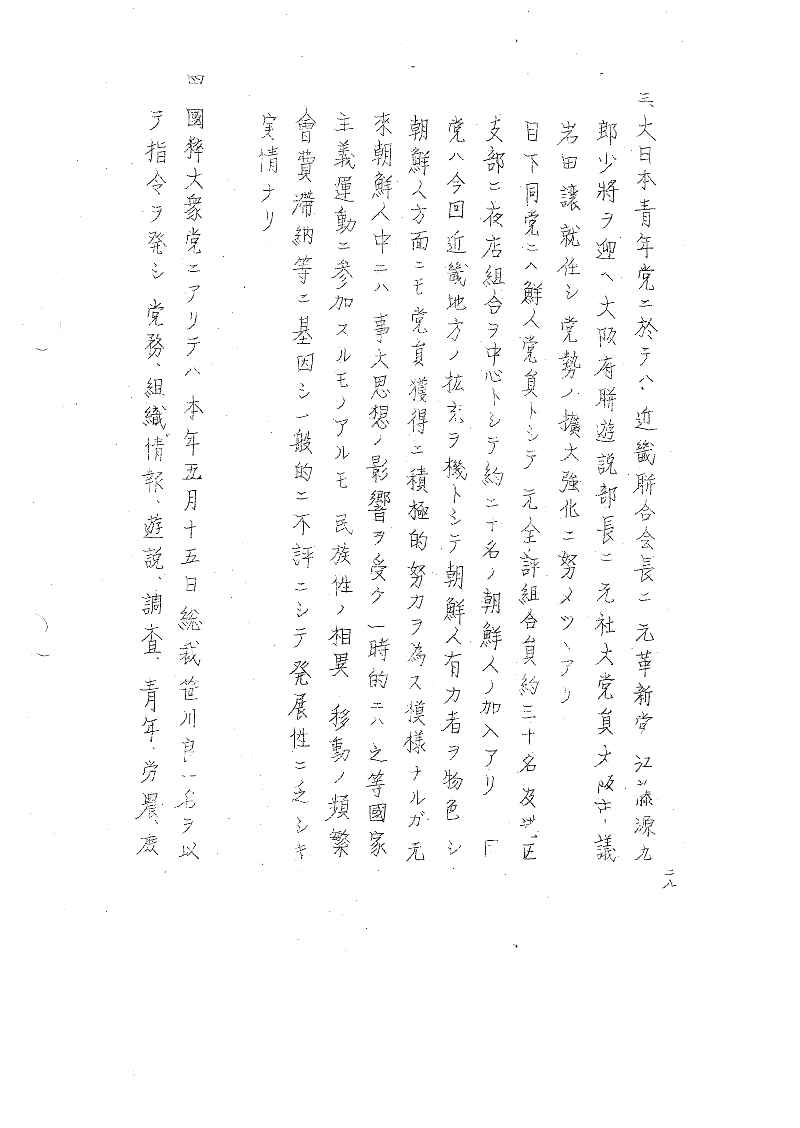 三、大日本青年党ニ於テハ、近畿聯合会長ニ元革新党江藤源九
郎少將ヲ迎ヘ大阪府聯遊説部長ニ元社大党員大阪市議
岩田讓就任シ党勢ノ擴大強化ニ努メツヽアリ
目下同党ニハ鮮人党員トシテ元全評組合員約三十名及港区
支部ニ夜店組合ヲ中心トシテ約二十名ノ朝鮮人ノ加入アリ 同
党ハ今回近畿地方ノ拡充ヲ機トシテ朝鮮人有力者ヲ物色シ
朝鮮人方面ニモ党員獲得ニ積極的努力ヲ為ス模様ナルガ元
來朝鮮人中ニハ事大思想ノ影響ヲ受ケ一時的ニハ之等國家
主義運動ニ参加スルモノアルモ民族性ノ相異移動ノ頻繁
會費滞納等ニ基因シ一般的ニ不評ニシテ発展性ニ乏シキ
実情ナリ
四 國粹大衆党ニアリテハ本年五月十五日総裁笹川良一名ヲ以
テ指令ヲ発シ党務、組織、情報、遊説、調査、青年、労農、
二八